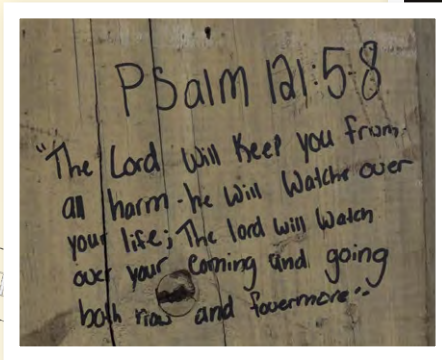 Psalm 121:5-8
"The Lord Will Keep you from
all harm - he Will Watche over
your life; The lord will Watch
over your coming and going
both now and fovermore."